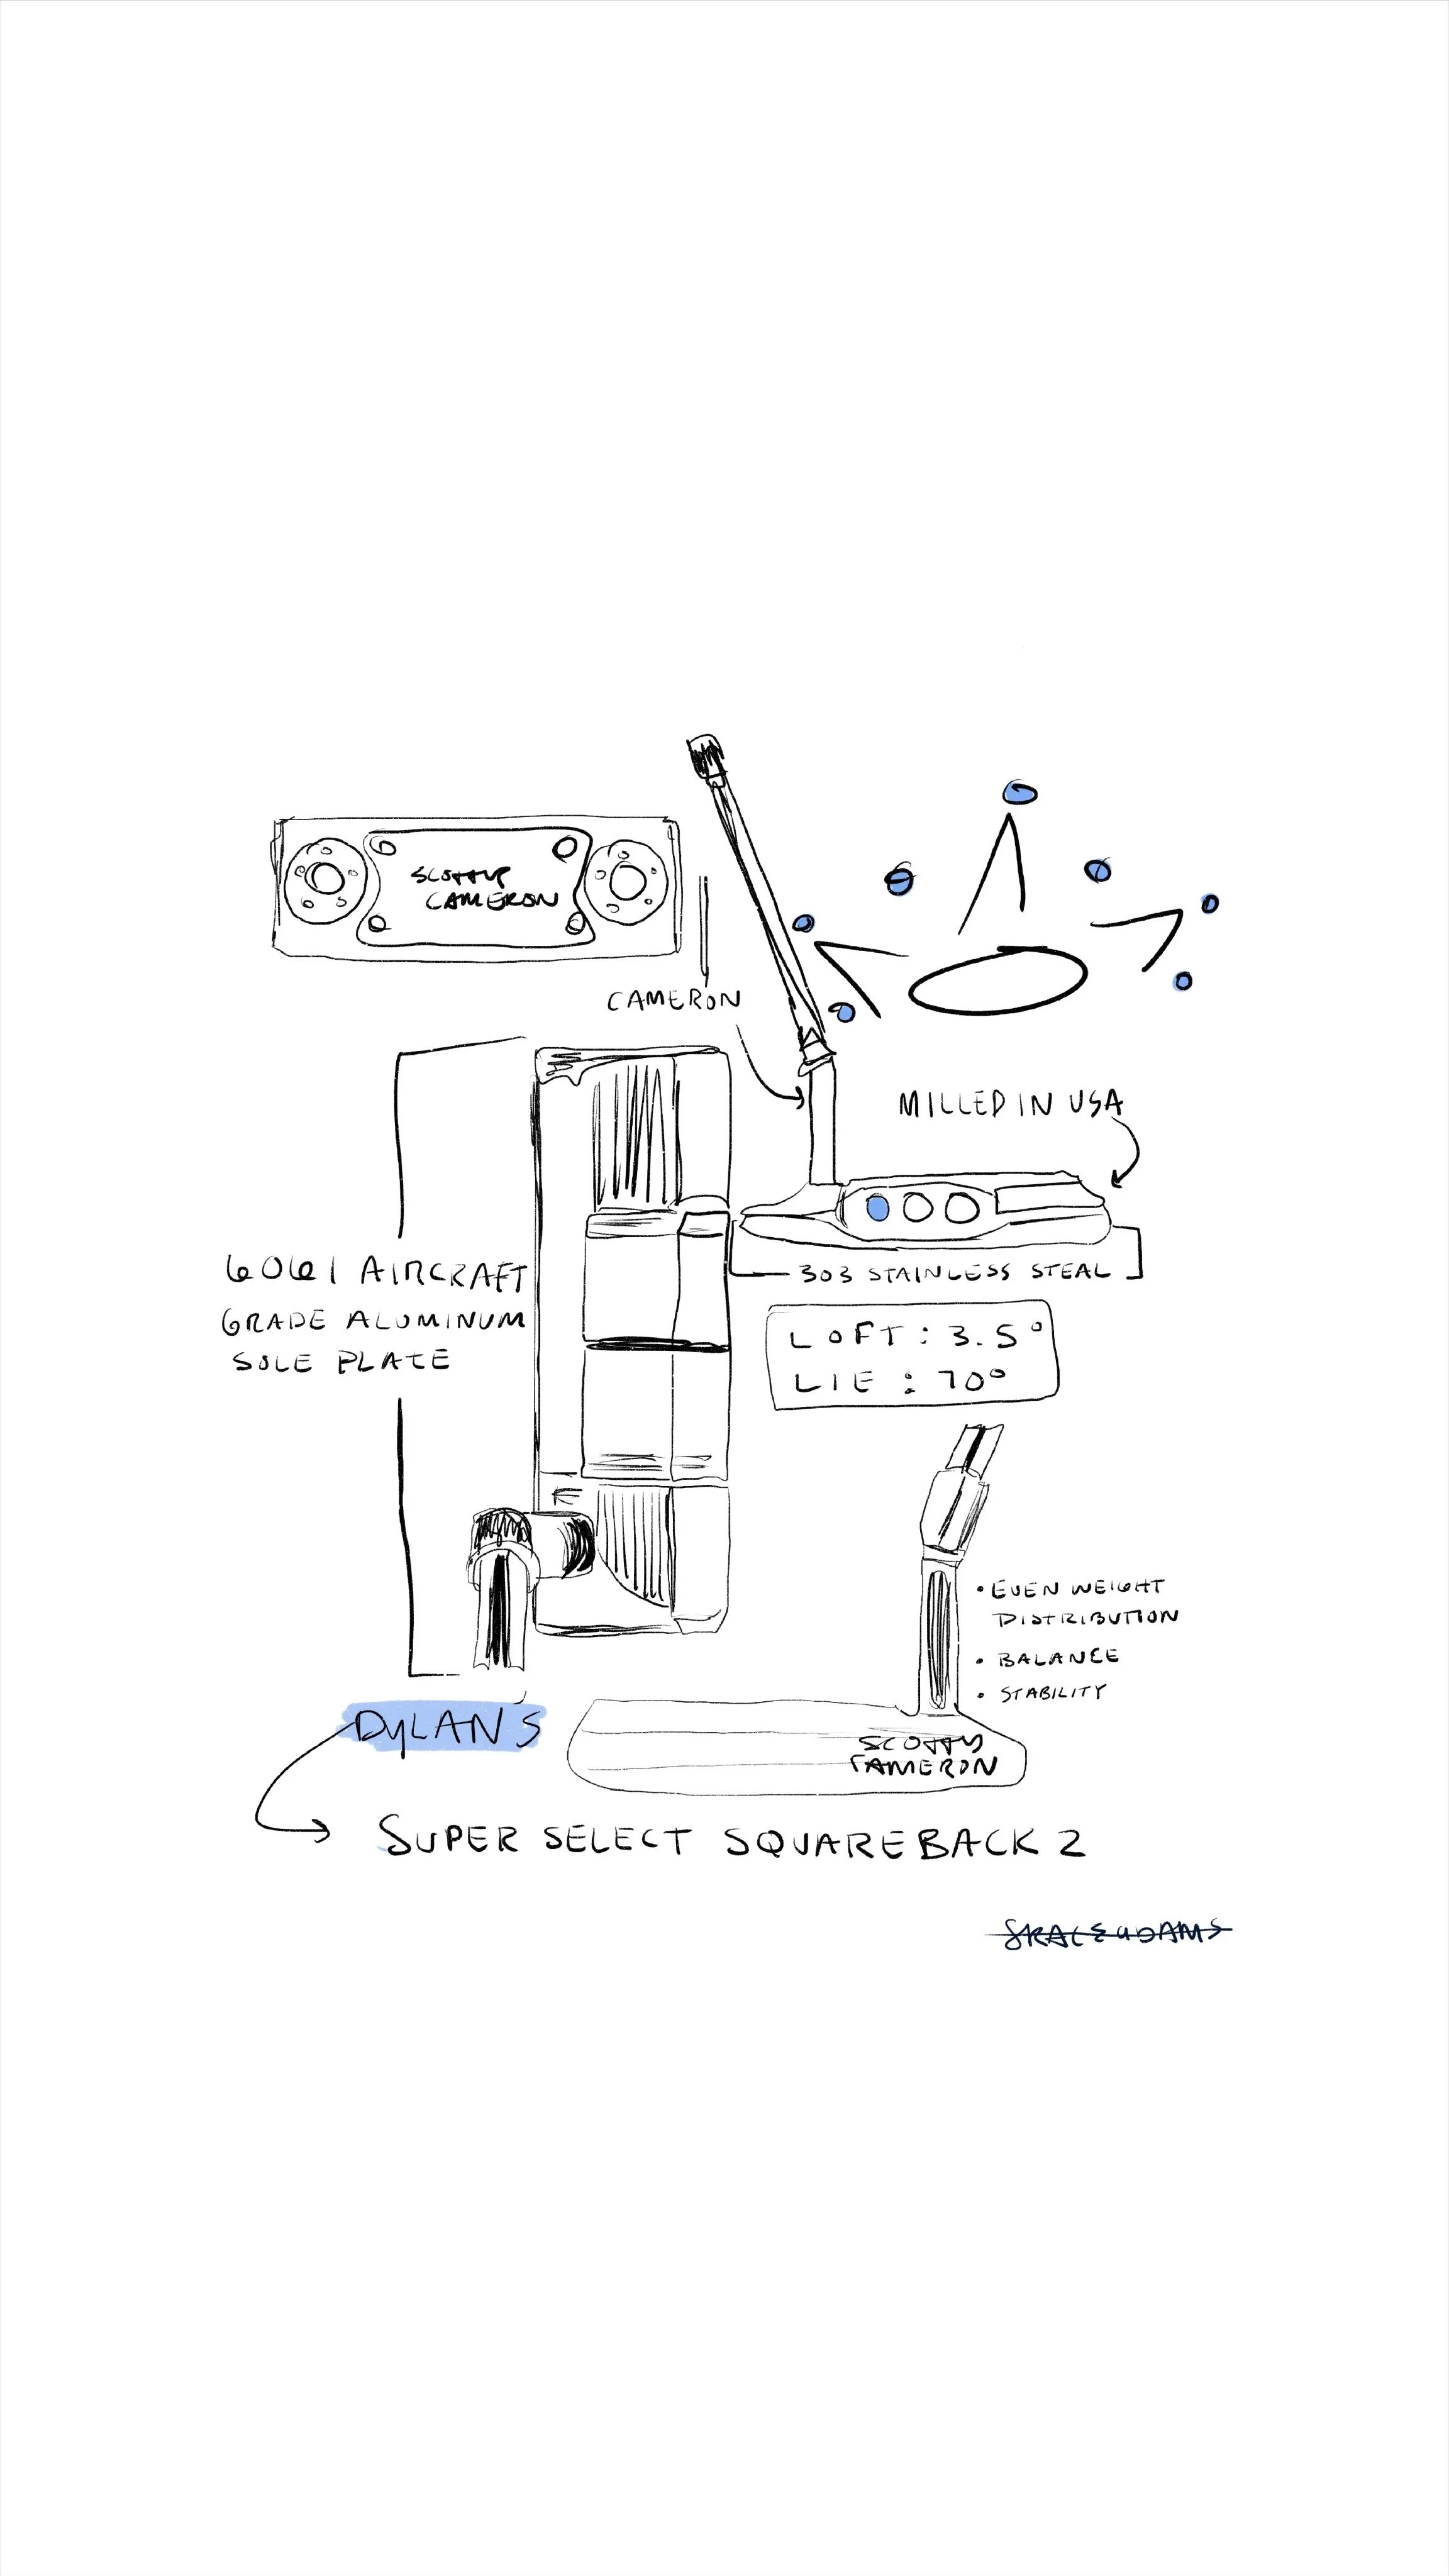 SCOTTY
CAMERON
CAMERON
MILLED IN USA
6061 AIRCRAFT
GRADE ALUMINUM
SOLE PLATE
303 STAINLESS STEAL
LOFT: 3.5°
LIE: 70°
• EVEN WEIGHT
DISTRIBUTION
• BALANCE
• STABILITY
DYLAN'S
SCOTTY
CAMERON
SUPER SELECT SQUAREBACK 2